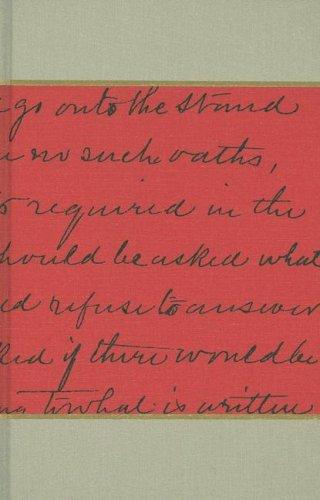 go onto the stand
no such oaths,
required in the
should be asked what
refuse to answer
if there would be
to what is written